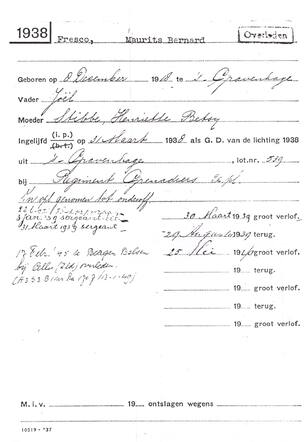 1938 Fresco, Maurits Bernard Overleden
Geboren op 8 December 1918 te 's-Gravenhage
Vader Joël
Moeder Stibbe, Henriette Betsy
Ingelijfd (i. p.) (b.t.) op 21 Maart 1938 als G. D. van de lichting 1938
uit 's-Gravenhage, lot.nr. 539
bij Regiment Grenadiers
In opl genomen tot onderoff.
30 Maart 1939 groot verlof.
3 Jan '39 sergeant
31 Maart 1939 sergeant
29 Augustus 1939 terug.
17 Febr. '45 te Bergen Belsen
25 Mei 1940 groot verlof.
bij Celle (Dld) overleden
19 terug.
19 groot verlof.
19 terug.
19 groot verlof.
M. i. v. 19 ontslagen wegens
10519 - '37